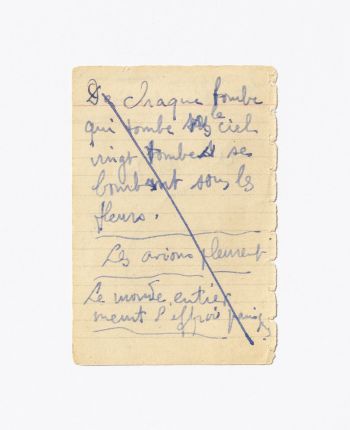 De chaque tombe
qui tombe sous le ciel
vingt tombes se
bombent sous les
fleurs.
Les avions pleurent
Le monde entier
meurt d'effroi